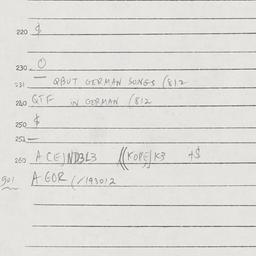 220 $
230 O
231 — QBUT GERMAN SONGS (812
240 QTF IN GERMAN (812
250 $
252 —
260 A CE)ND3L3 ((KOPE)K3 +$
901 A GOR (/193012